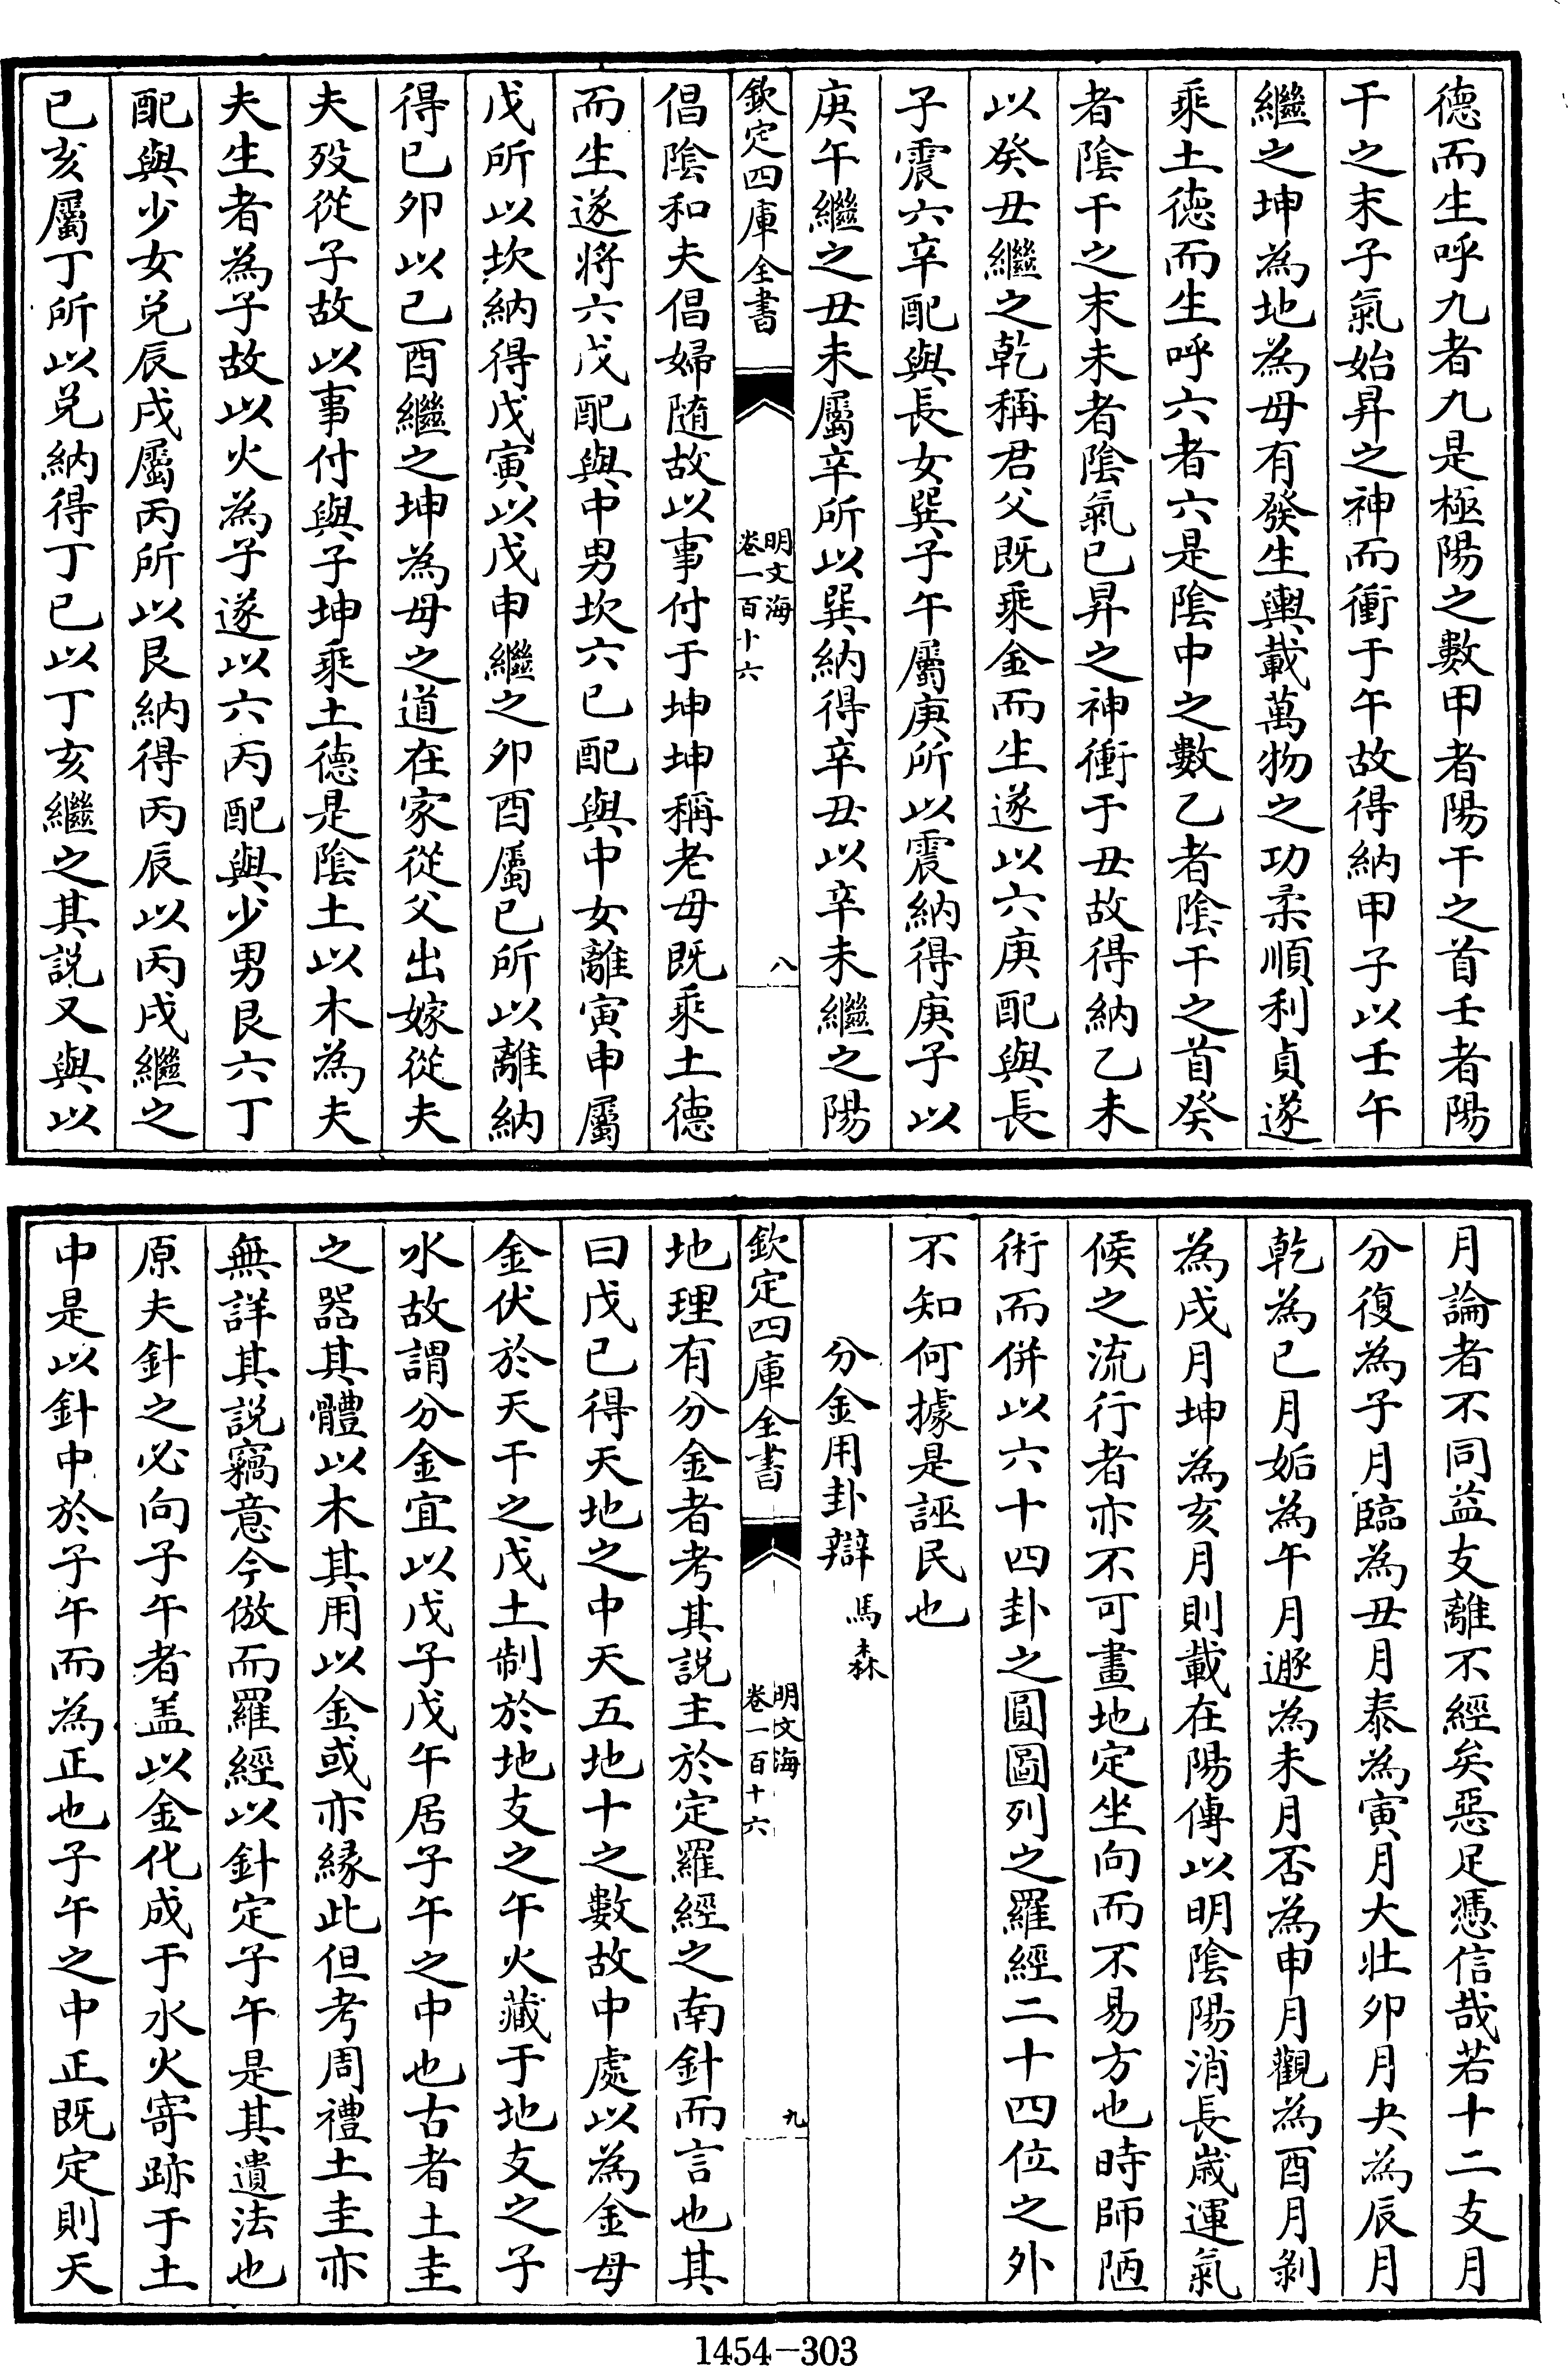 德而生呼九者九是極陽之數甲者陽干之首壬者陽
干之末子氣始昇之神而衝于午故得納甲子以壬午
繼之坤為地為母有發生輿載萬物之功柔順利貞遂
乘土德而生呼六者六是陰中之數乙者陰干之首癸
者陰干之末未者陰氣已昇之神衝于丑故得納乙未
以癸丑繼之乾稱君父既乘金而生遂以六庚配與長
子震六辛配與長女巽子午屬庚所以震納得庚子以
庚午繼之丑未屬辛所以巽納得辛丑以辛未繼之陽
欽定四庫全書 明文海 卷一百十六 八
倡陰和夫倡婦隨故以事付于坤坤稱老母既乘土德
而生遂將六戊配與中男坎六已配與中女離寅申屬
戊所以坎納得戊寅以戊申繼之卯酉屬已所以離納
得已卯以已酉繼之坤為母之道在家從父出嫁從夫
夫歿從子故以事付與子坤乘土德是陰土以木為夫
夫生者為子故以火為子遂以六丙配與少男艮六丁
配與少女兌辰戌屬丙所以艮納得丙辰以丙戌繼之
已亥屬丁所以兌納得丁已以丁亥繼之其説又與以
月論者不同益支離不經矣惡足憑信哉若十二支月
分復為子月臨為丑月泰為寅月大壯卯月夬為辰月
乾為已月姤為午月遯為未月否為申月觀為酉月剝
為戌月坤為亥月則載在陽傳以明陰陽消長歲運氣
候之流行者亦不可畫地定坐向而不易方也時師陋
術而併以六十四卦之圓圖列之羅經二十四位之外
不知何據是誣民也
分金用卦辯 馬森
欽定四庫全書 明文海 卷一百十六 九
地理有分金者考其説主於定羅經之南針而言也其
曰戊已得天地之中天五地十之數故中處以為金母
金伏於天干之戊土制於地支之午火藏于地支之子
水故謂分金宜以戊子戊午居子午之中也古者土圭
之器其體以木其用以金或亦緣此但考周禮土圭亦
無詳其説竊意今倣而羅經以針定子午是其遺法也
原夫針之必向子午者盖以金化成于水火寄跡于土
中是以針中於子午而為正也子午之中正既定則天
1454-303